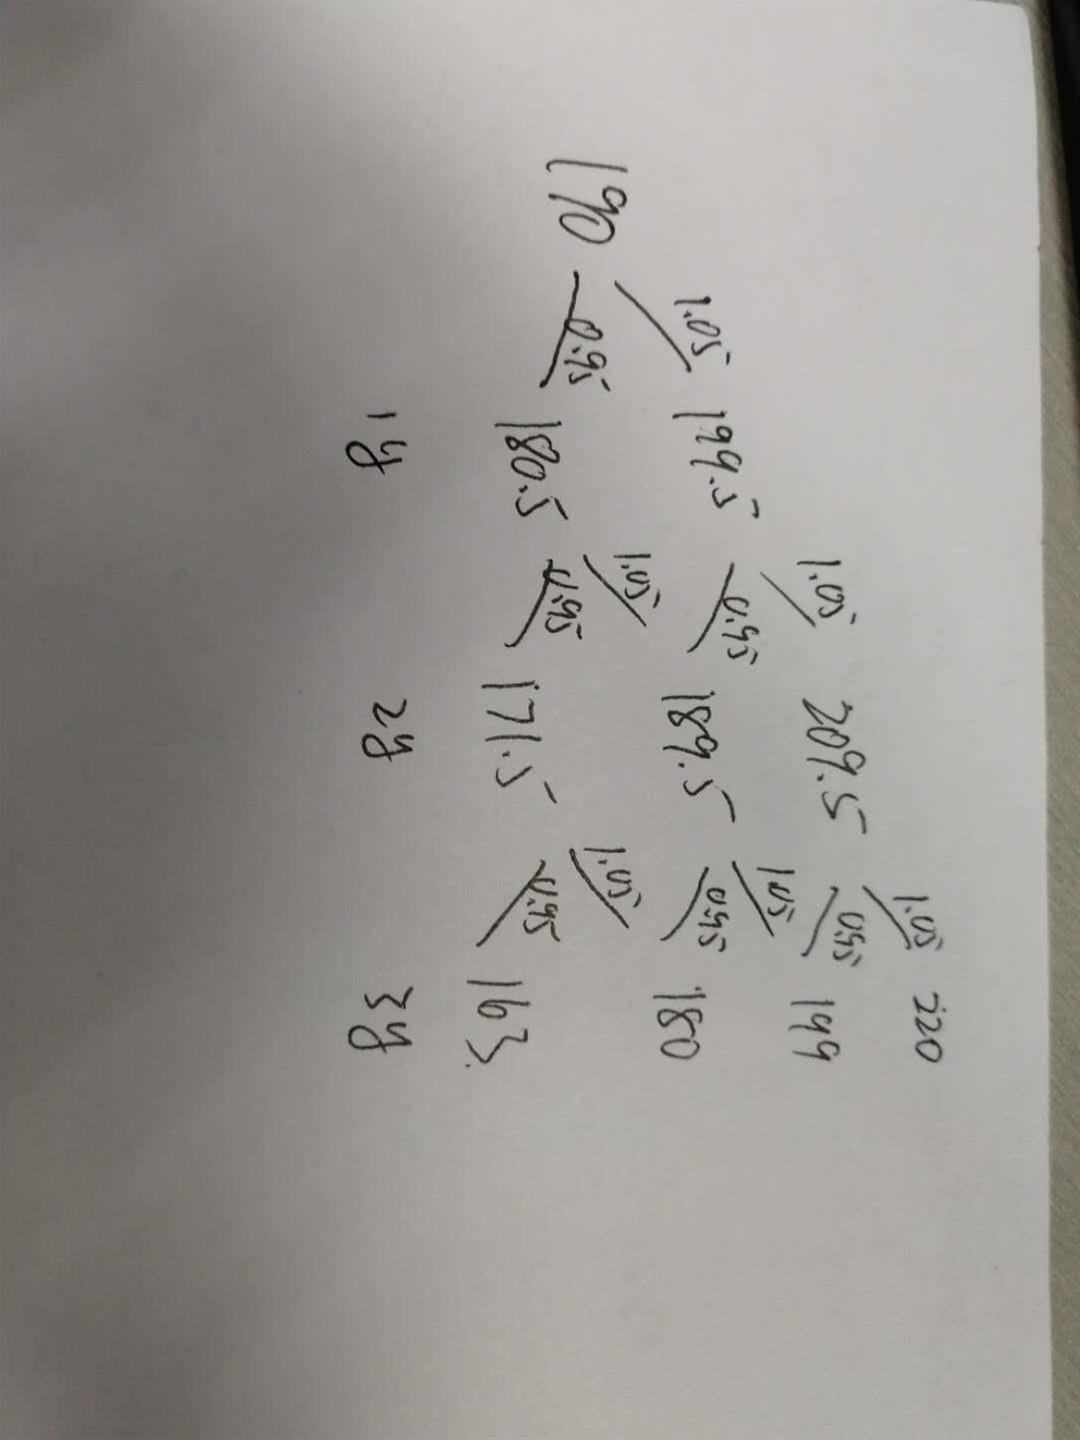 1.05 220
1.05 209.5 0.95 199
1.05 199.5 0.95 189.5 1.05 0.95 180
190 0.95 180.5 1.05 0.95 171.5 1.05 0.95 163.
1y 2y 3y